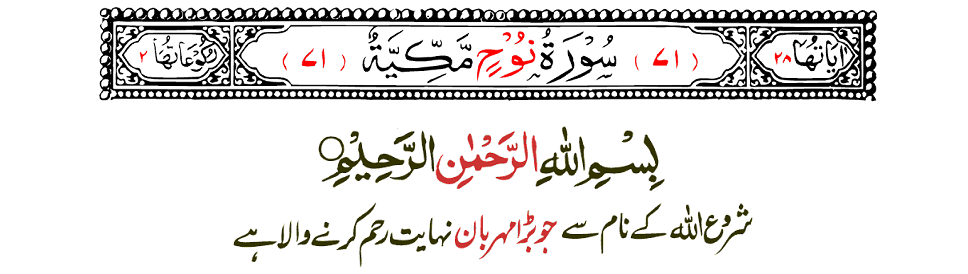 اٰیَاتُهَا ۲۸ (۷۱) سُوْرَةُ نُوْحٍ مَّكِّیَّةٌ (۷۱) رُكُوْعَاتُهَا ۲
بِسْمِ اللّٰهِ الرَّحْمٰنِ الرَّحِیْمِ○
شروع اللہ کے نام سے جو بڑا مہربان نہایت رحم کرنے والا ہے